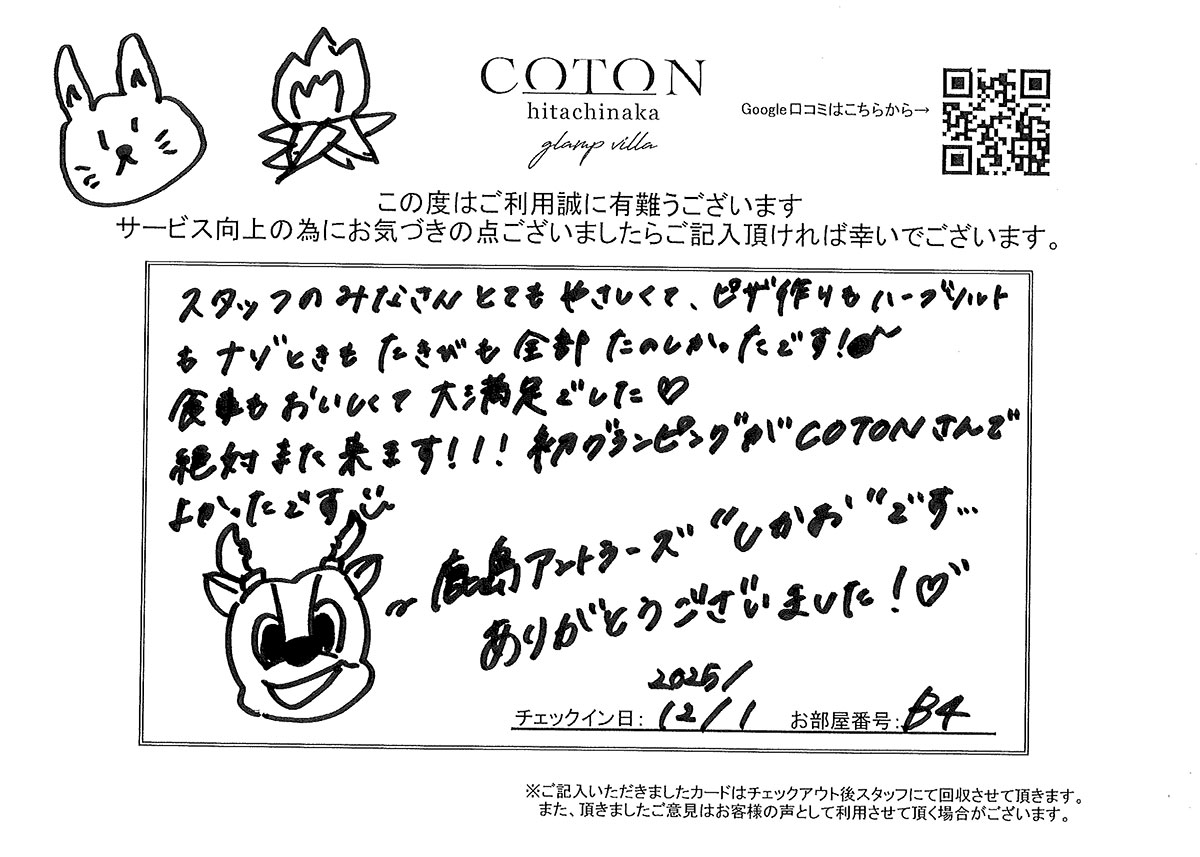 COTON
hitachinaka
glamp villa
Google口コミはこちらから→
この度はご利用誠に有難うございます
サービス向上の為にお気づきの点ございましたらご記入頂ければ幸いでございます。
スタッフのみなさんとてもやさしくて、ピザ作りもハーブソルト
もナゾときもたきびも全部たのしかったです!
食事もおいしくて大満足でした♡
絶対また来ます!!!初グランピングがCOTONさんで
よかったです
鹿島アントラーズ"しかお"です…
ありがとうございました!♡
2025/
チェックイン日: 12/1 お部屋番号: B4
※ご記入いただきましたカードはチェックアウト後スタッフにて回収させて頂きます。
また、頂きましたご意見はお客様の声として利用させて頂く場合がございます。